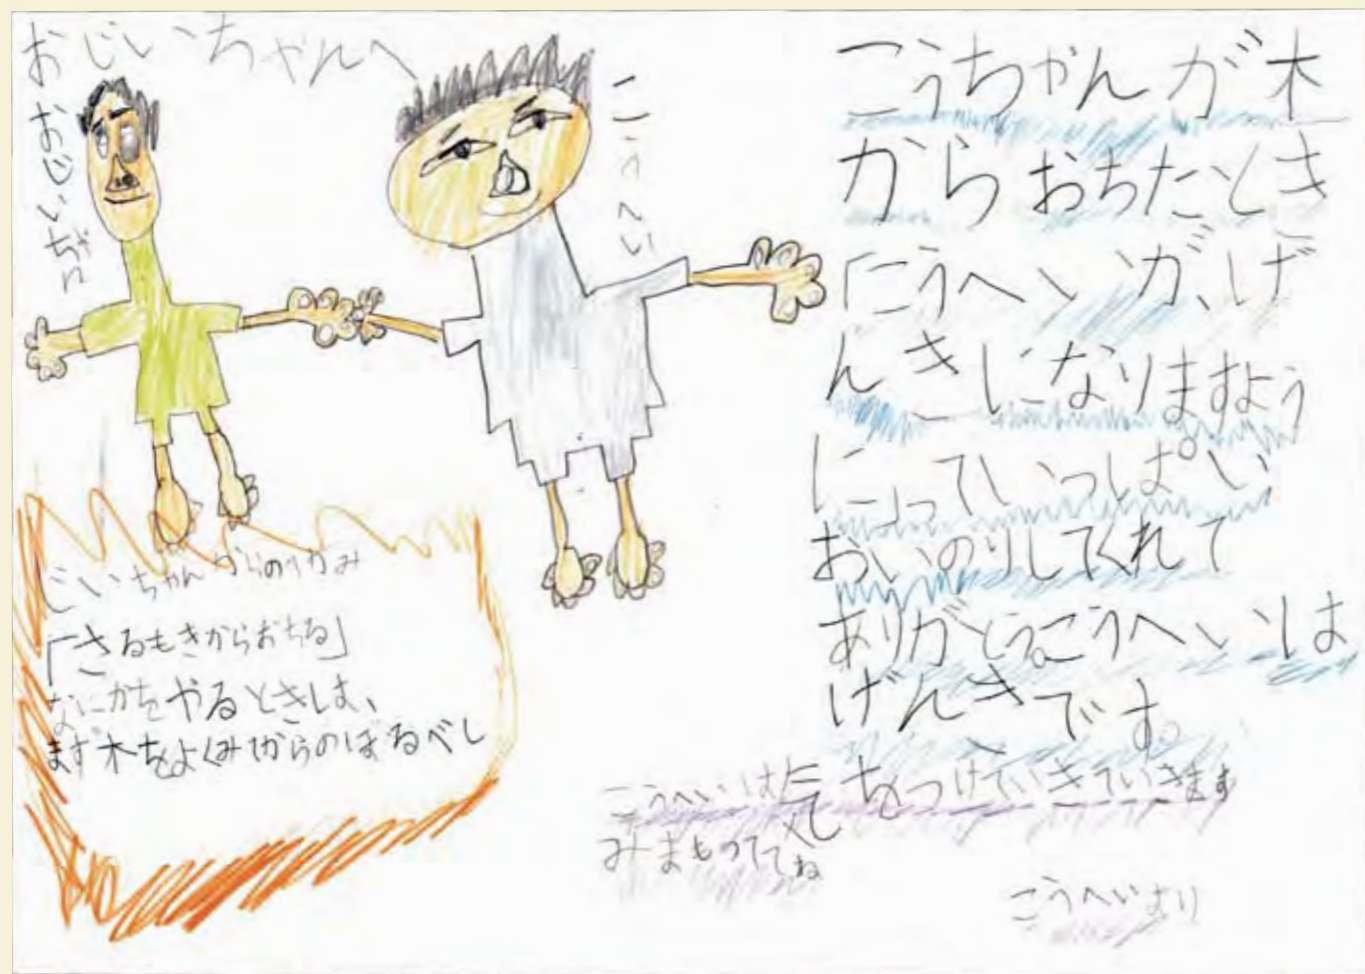 おじいちゃんへ
おおじいぢゃん
こうへい
こうちゃんが木
からおちたとき
「こうへいが、げ
んきになりますよう
に」っていっぱい
おいのりしてくれて
ありがとう。こうへいは
げんきです。
こうへいは気をつけていきていきます
みまもっててね
こうへいより
じいちゃんからのてがみ
「さるもきからおちる」
なにかをやるときは、
まず木をよくみてからのぼるべし